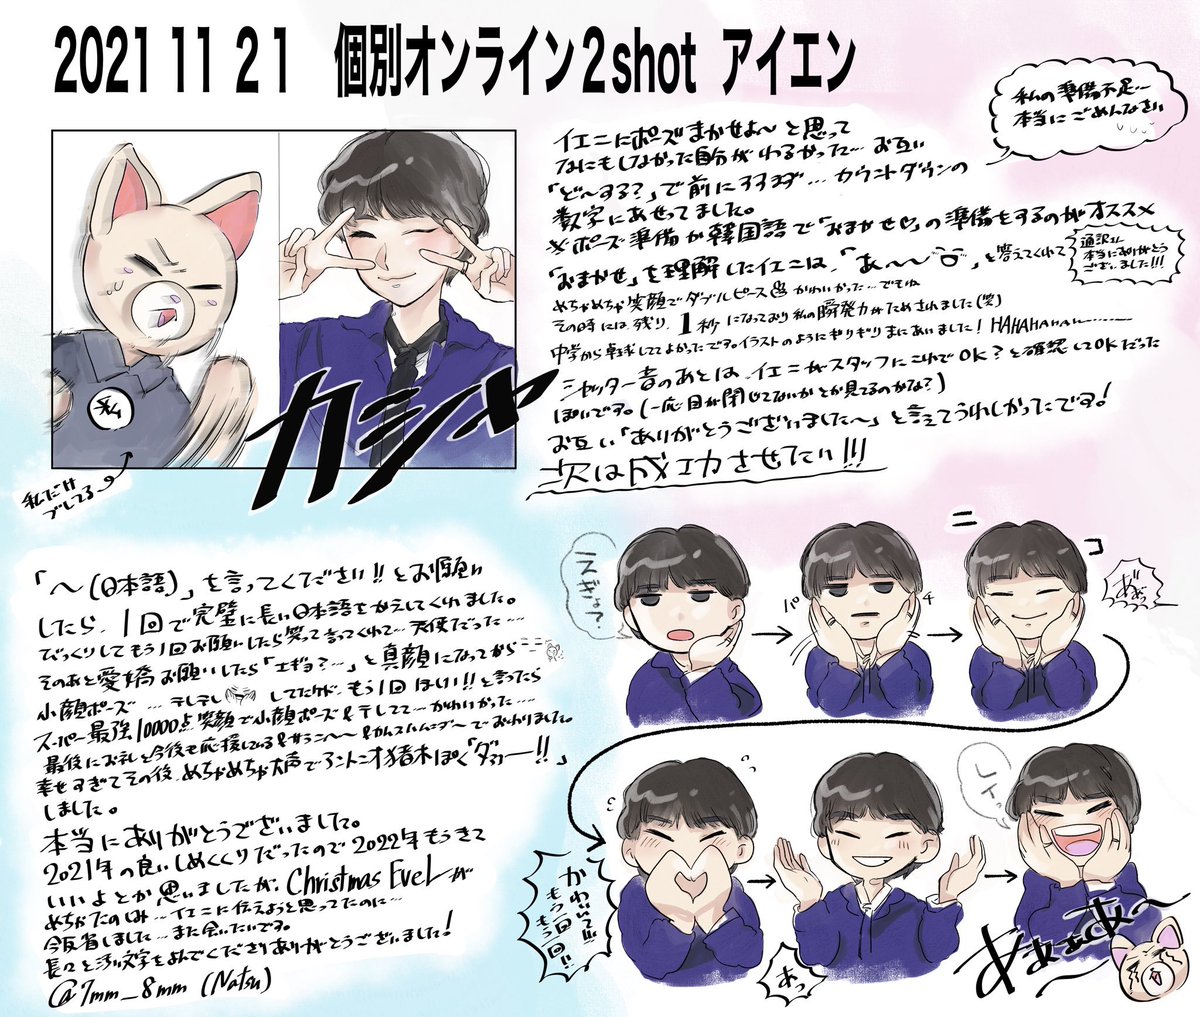 2021 11 21 個別オンライン2shot アイエン
私の準備不足…
本当にごめんなさい
イエニにポーズまかせよ〜と思って
なにもしなかった自分がわるかった… お互い
「ど〜する?」で前にすすまず… カウントダウンの
数字にあせってました。
※ポーズ準備か韓国語で「おまかせ♡」の準備をするのがオススメ
「おまかせ」を理解したイエニは、「あ〜〜」と答えてくれて
通訳さん
本当にありがとう
ございました!!!
めちゃめちゃ笑顔でダブルピース かわいかった…でもね
その時には残り、1秒になっており私の瞬発力がためされました(笑)
中学から卓球しててよかったです。イラストのようにギリギリまにあいました! HAHAHAHA
シャッター音のあとは、イエニがスタッフにこれでOK?と確認してOKだった
ぽいです。(一応目が閉じてないかとか見てるのかな?)
お互い「ありがとうございました〜」と言えてうれしかったです!
次は成功させたい!!!
カシャ
私
私だけ
ブレてる
「〜(日本語)」を言ってください!!とお願い
したら、1回で完璧に長い日本語をかえしてくれました。
びっくりしてもう1回お願いしたら笑って言ってくれて…天使だった…
そのあと愛嬌お願いしたら「エギョ?…」と真顔になってから
小顔ポーズ…テレテレしてたけど、もう1回ほしい!!と言ったら
スーパー最強10000点笑顔で小顔ポーズ&テレてて…かわいかった…
最後にお礼と今後も応援している&サランヘ〜&かんさはんむだ〜でおわりました。
幸せすぎてその後、めちゃめちゃ大声でアントニオ猪木ぽく「ダァー!!」
しました。
本当にありがとうございました。
2021年の良いしめくくりだったので2022年もうきて
いいよとか思いましたが、Christmas EveLが
めちゃたのしみ…イエニに伝えようと思ってたのに…
今反省しました…また会いたいです。
長々と汚い文字をよんでくださりありがとうございました!
@7mm_8mm (Natsu)
エギョ?
パ
チ
ニコ
あぁ
かわいい!!!
もう一回
もう一回!!
あっ
レイっ
あぁぁぁあ〜